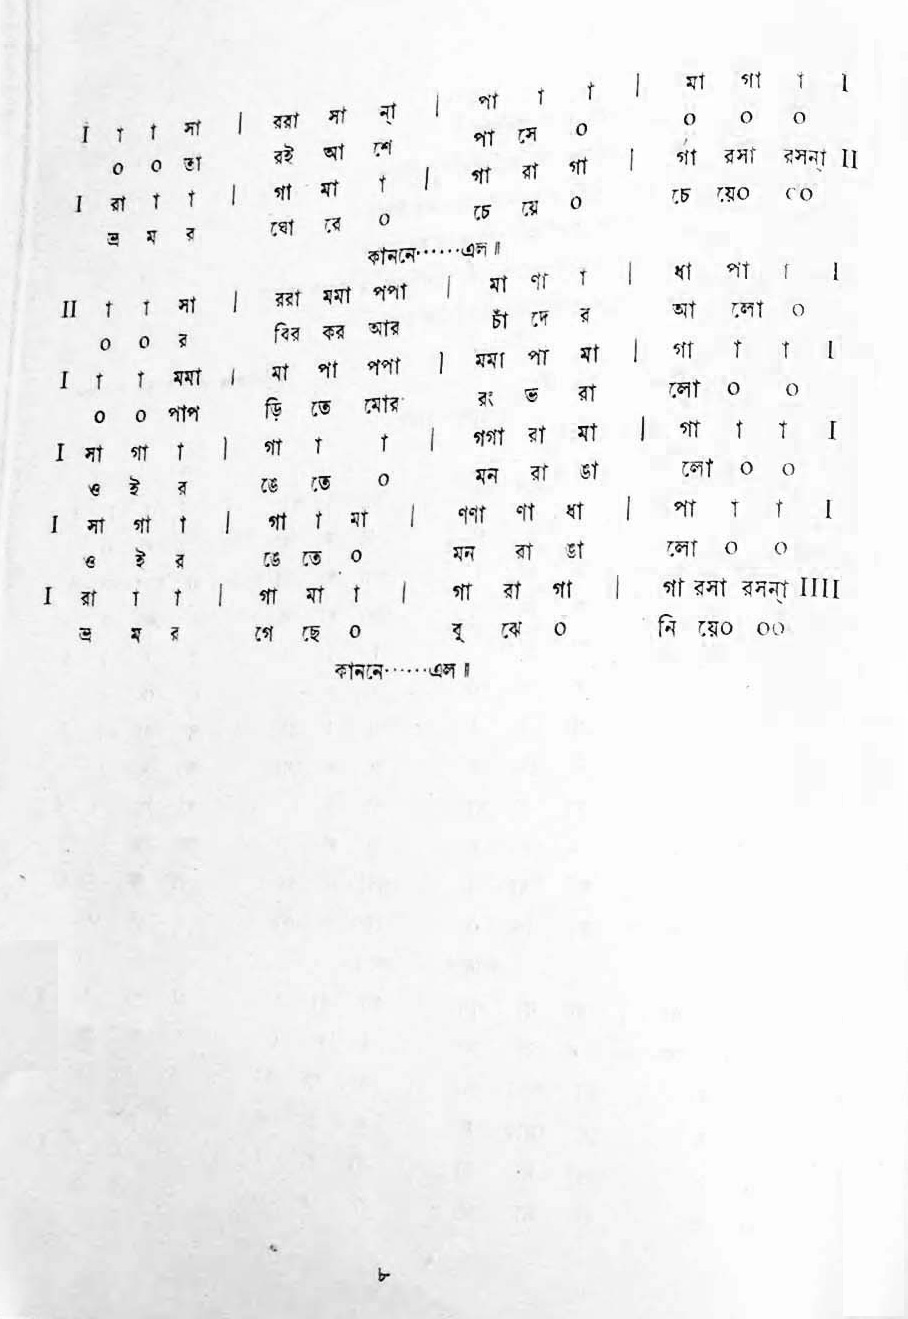 I া া সা | ররা সা ন্‌া | পা া া | মা গা া I
০ ০ তা রই আ শে পা সে ০ ০ ০ ০
I রা া া | গা মা া | গা রা গা | গা রসা রসন্‌া II
ভ্র ম র ঘো রে ০ চে য়ে ০ চে য়ে০ ০০
কাননে······এল॥
II া া সা | ররা মমা পপা | মা ণা া | ধা পা া I
০ ০ র বির কর আর চাঁ দে র আ লো ০
I া া মমা | মা পা পপা | মমা পা মা | গা া া I
০ ০ পাপ ড়ি তে মোর রং ভ রা লো ০ ০
I সা গা া | গা া া | গগা রা মা | গা া া I
ও ই র ঙে তে ০ মন রা ঙা লো ০ ০
I সা গা া | গা া মা | ণণা ণা ধা | পা া া I
ও ই র ঙে তে ০ মন রা ঙা লো ০ ০
I রা া া | গা মা া | গা রা গা | গা রসা রসন্‌া IIII
ভ্র ম র গে ছে ০ বু ঝে ০ নি য়ে০ ০০
কাননে······এল॥
৮